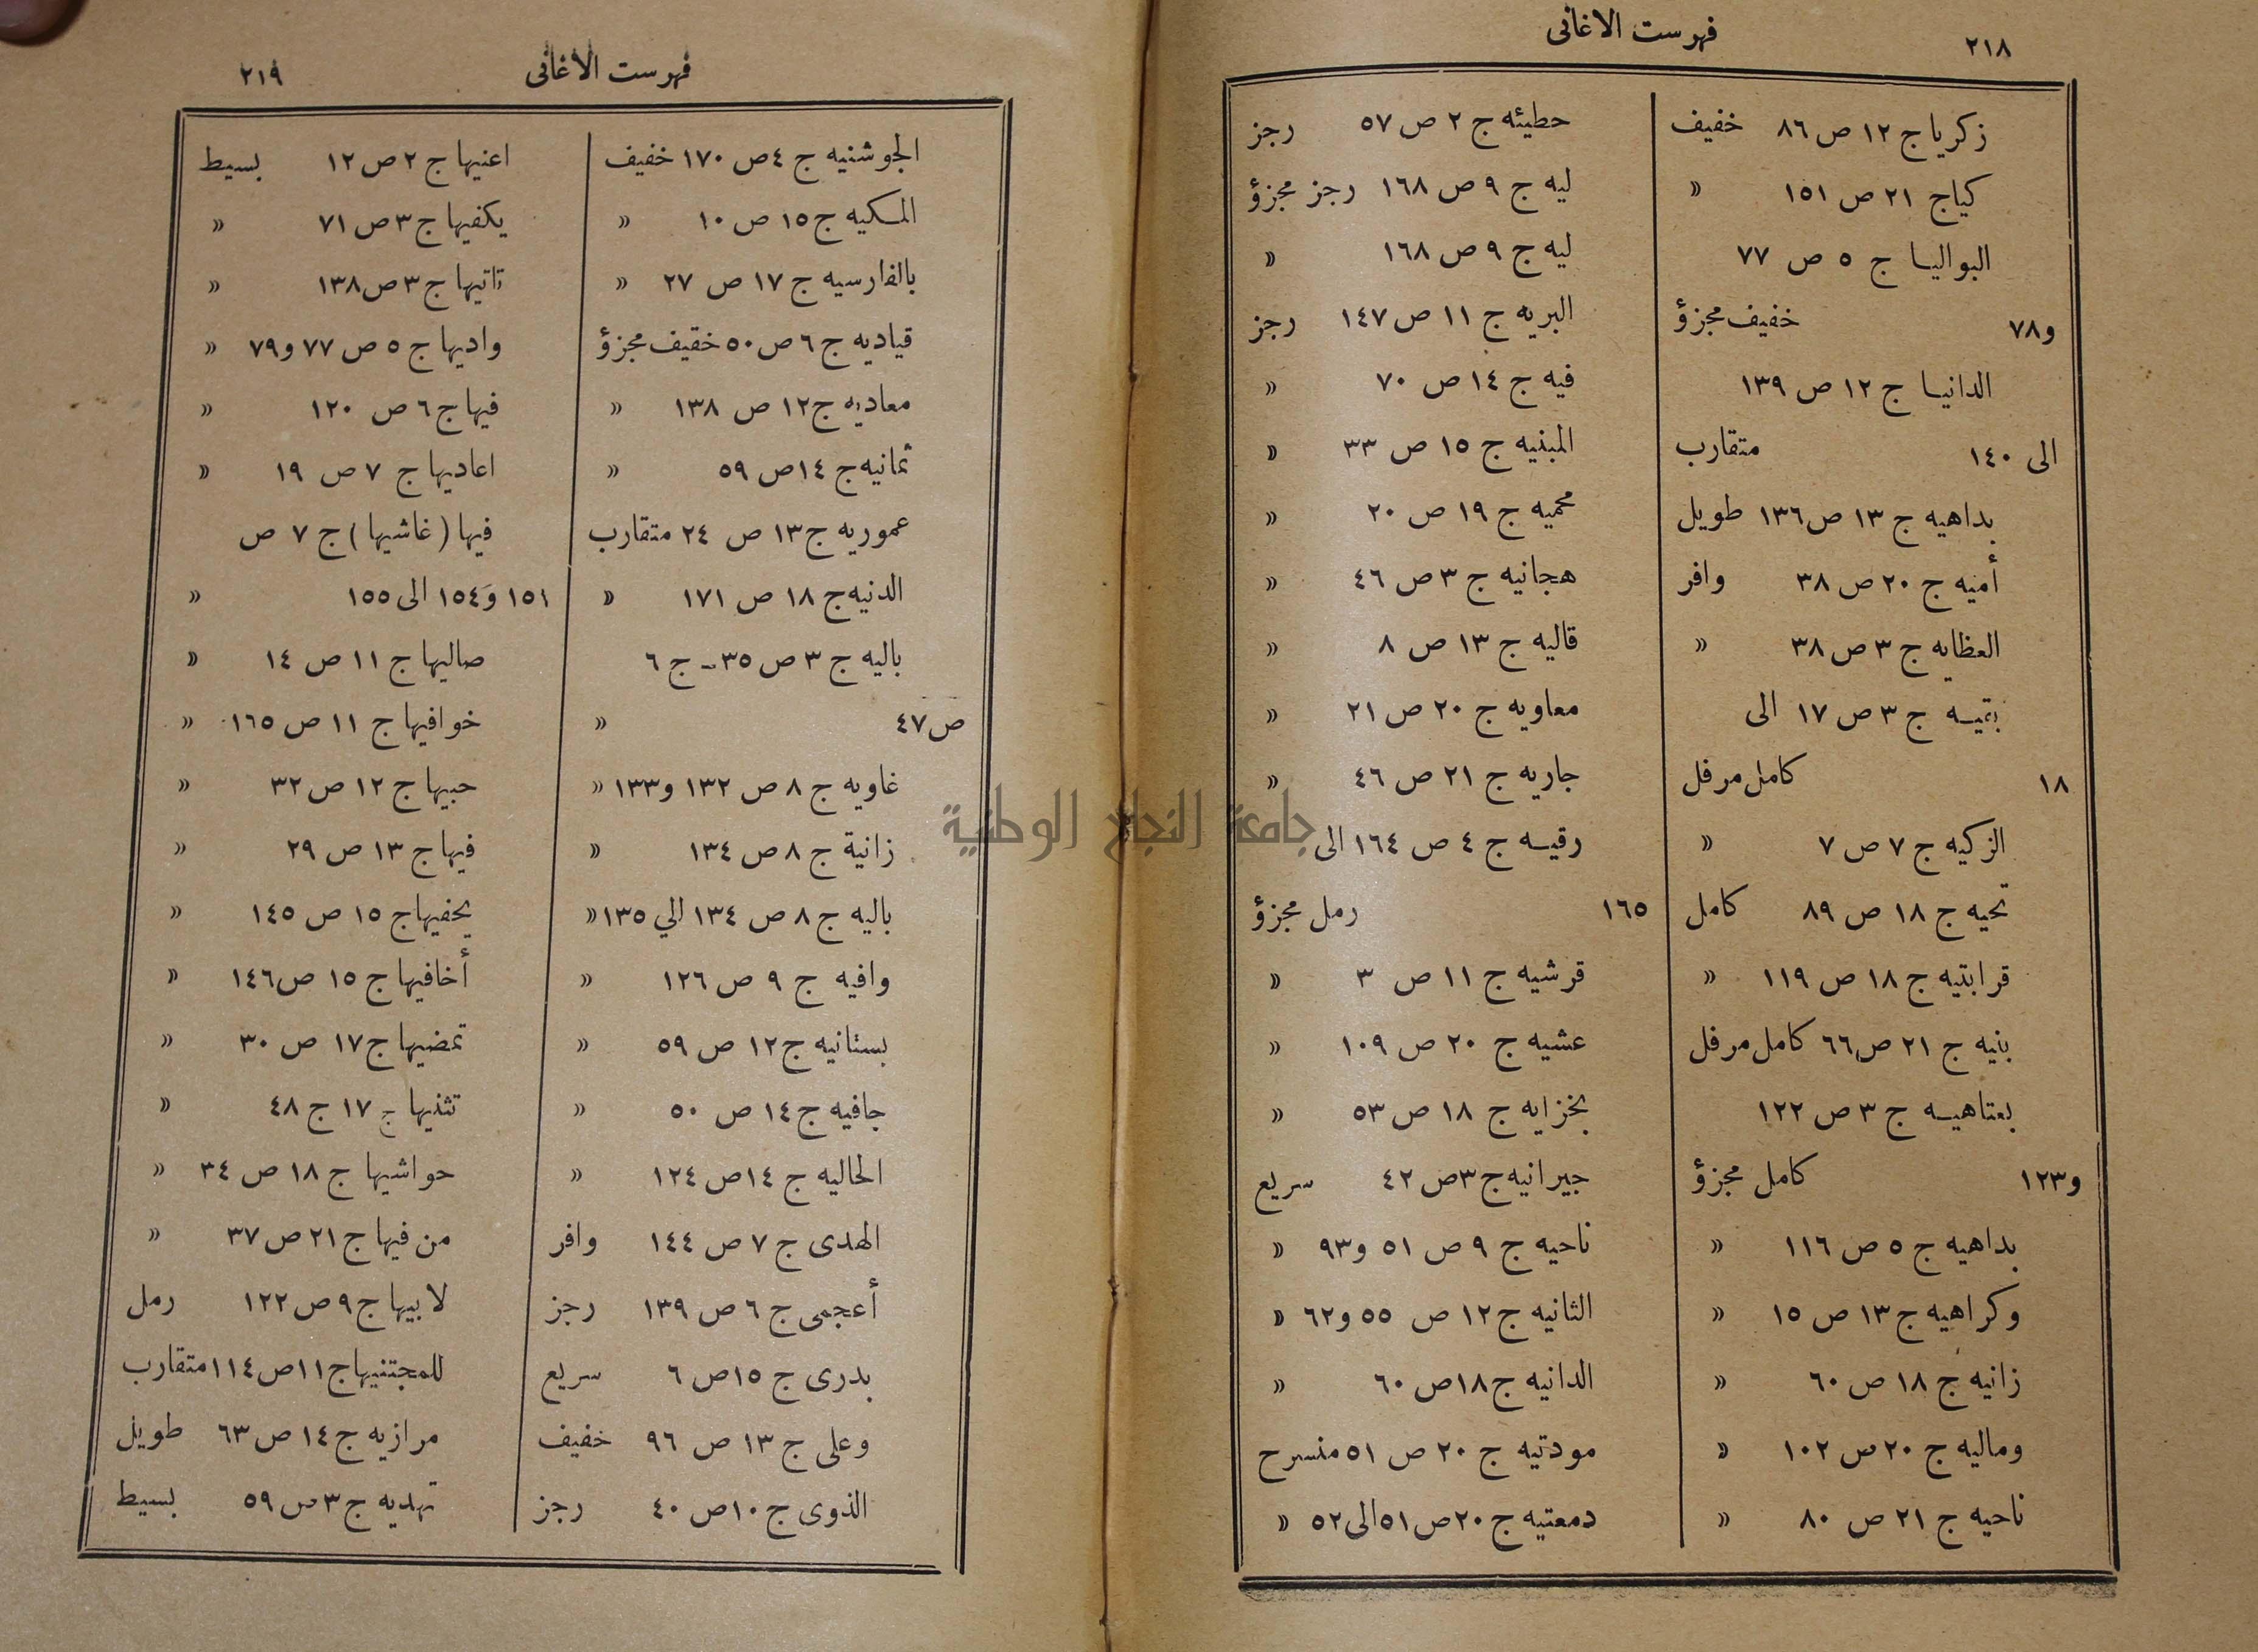 ٢١٨
فهرست الاغانى
زكريا ج ١٢ ص ٨٦ خفيف
كياج ٢١ ص ١٥١ »
البواليـا ج ٥ ص ٧٧
و٧٨ خفيف مجزؤ
الدانيـا ج ١٢ ص ١٣٩
الى ١٤٠ متقارب
بداهيه ج ١٣ ص ١٣٦ طويل
أميه ج ٢٠ ص ٣٨ وافر
العظايه ج ٣ ص ٣٨ »
بتميـه ج ٣ ص ١٧ الى
١٨ كامل مرفل
الزكيه ج ٧ ص ٧ »
تحيه ج ١٨ ص ٨٩ كامل
قرابتيه ج ١٨ ص ١١٩ »
بنيه ج ٢١ ص ٦٦ كامل مرفل
بعتاهيـه ج ٣ ص ١٢٢
و١٢٣ كامل مجزؤ
بداهيه ج ٥ ص ١١٦ »
وكراهيه ج ١٣ ص ١٥ »
زانيه ج ١٨ ص ٦٠ »
وماليه ج ٢٠ ص ١٠٢ »
ناحيه ج ٢١ ص ٨٠ »
حطيئه ج ٢ ص ٥٧ رجز
ليه ج ٩ ص ١٦٨ رجز مجزؤ
ليه ج ٩ ص ١٦٨ »
البريه ج ١١ ص ١٤٧ رجز
فيه ج ١٤ ص ٧٠ »
المبنيه ج ١٥ ص ٣٣ »
محميه ج ١٩ ص ٢٠ »
هجانيه ج ٣ ص ٤٦ »
قاليه ج ١٣ ص ٨ »
معاويه ج ٢٠ ص ٢١ »
جاريه ج ٢١ ص ٤٦ »
رقيـه ج ٤ ص ١٦٤ الى
١٦٥ رمل مجزؤ
قرشيه ج ١١ ص ٣ »
عشيه ج ٢٠ ص ١٠٩ »
بخزايه ج ١٨ ص ٥٣ »
جيرانيه ج ٣ ص ٤٢ سريع
ناحيه ج ٩ ص ٥١ و٩٣ »
الثانيه ج ١٢ ص ٥٥ و٦٢ »
الدانيه ج ١٨ ص ٦٠ »
مودتيه ج ٢٠ ص ٥١ منسرح
دمعتيه ج ٢٠ ص ٥١ الى ٥٢ »
جامعة النجاح الوطنية
فهرست الاغانى
٢١٩
الجوشنيه ج ٤ ص ١٧٠ خفيف
المكيه ج ١٥ ص ١٠ »
بالفارسيه ج ١٧ ص ٢٧ »
قياديه ج ٦ ص ٥٠ خفيف مجزؤ
معاديه ج ١٢ ص ١٣٨ »
ثمانيه ج ١٤ ص ٥٩ »
عموريه ج ١٣ ص ٢٤ متقارب
الدنيه ج ١٨ ص ١٧١ »
باليه ج ٣ ص ٣٥ - ج ٦
ص ٤٧ »
غاويه ج ٨ ص ١٣٢ و١٣٣ »
زانية ج ٨ ص ١٣٤ »
باليه ج ٨ ص ١٣٤ الي ١٣٥ »
وافيه ج ٩ ص ١٢٦ »
بستانيه ج ١٢ ص ٥٩ »
جافيه ج ١٤ ص ٥٠ »
الحاليه ج ١٤ ص ١٢٤ »
الهدى ج ٧ ص ١٤٤ وافر
أعجمى ج ٦ ص ١٣٩ رجز
بدرى ج ١٥ ص ٦ سريع
وعلى ج ١٣ ص ٩٦ خفيف
الذوى ج ١٠ ص ٤٠ رجز
اعنيها ج ٢ ص ١٢ بسيط
يكفيها ج ٣ ص ٧١ »
تاتيها ج ٣ ص ١٣٨ »
واديها ج ٥ ص ٧٧ و٧٩ »
فيها ج ٦ ص ١٢٠ »
اعاديها ج ٧ ص ١٩ »
فيها ( غاشيها ) ج ٧ ص
١٥١ و١٥٤ الى ١٥٥ »
صاليها ج ١١ ص ١٤ »
خوافيها ج ١١ ص ١٦٥ »
حبيها ج ١٢ ص ٣٢ »
فيها ج ١٣ ص ٢٩ »
يحفيها ج ١٥ ص ١٤٥ »
أخافيها ج ١٥ ص ١٤٦ »
تمضيها ج ١٧ ص ٣٠ »
تثنيها ج ١٧ ج ٤٨ »
حواشيها ج ١٨ ص ٣٤ »
من فيها ج ٢١ ص ٣٧ »
لابيها ج ٩ ص ١٢٢ رمل
للمجتنيها ج ١١ ص ١١٤ متقارب
مرازيه ج ١٤ ص ٦٣ طويل
تهديه ج ٣ ص ٥٩ بسيط